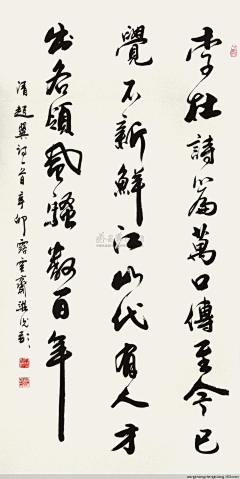 李杜詩篇萬口傳至今已
覺不新鮮江山代有人才
出各領風騷數百年
清趙翼詩一首辛卯